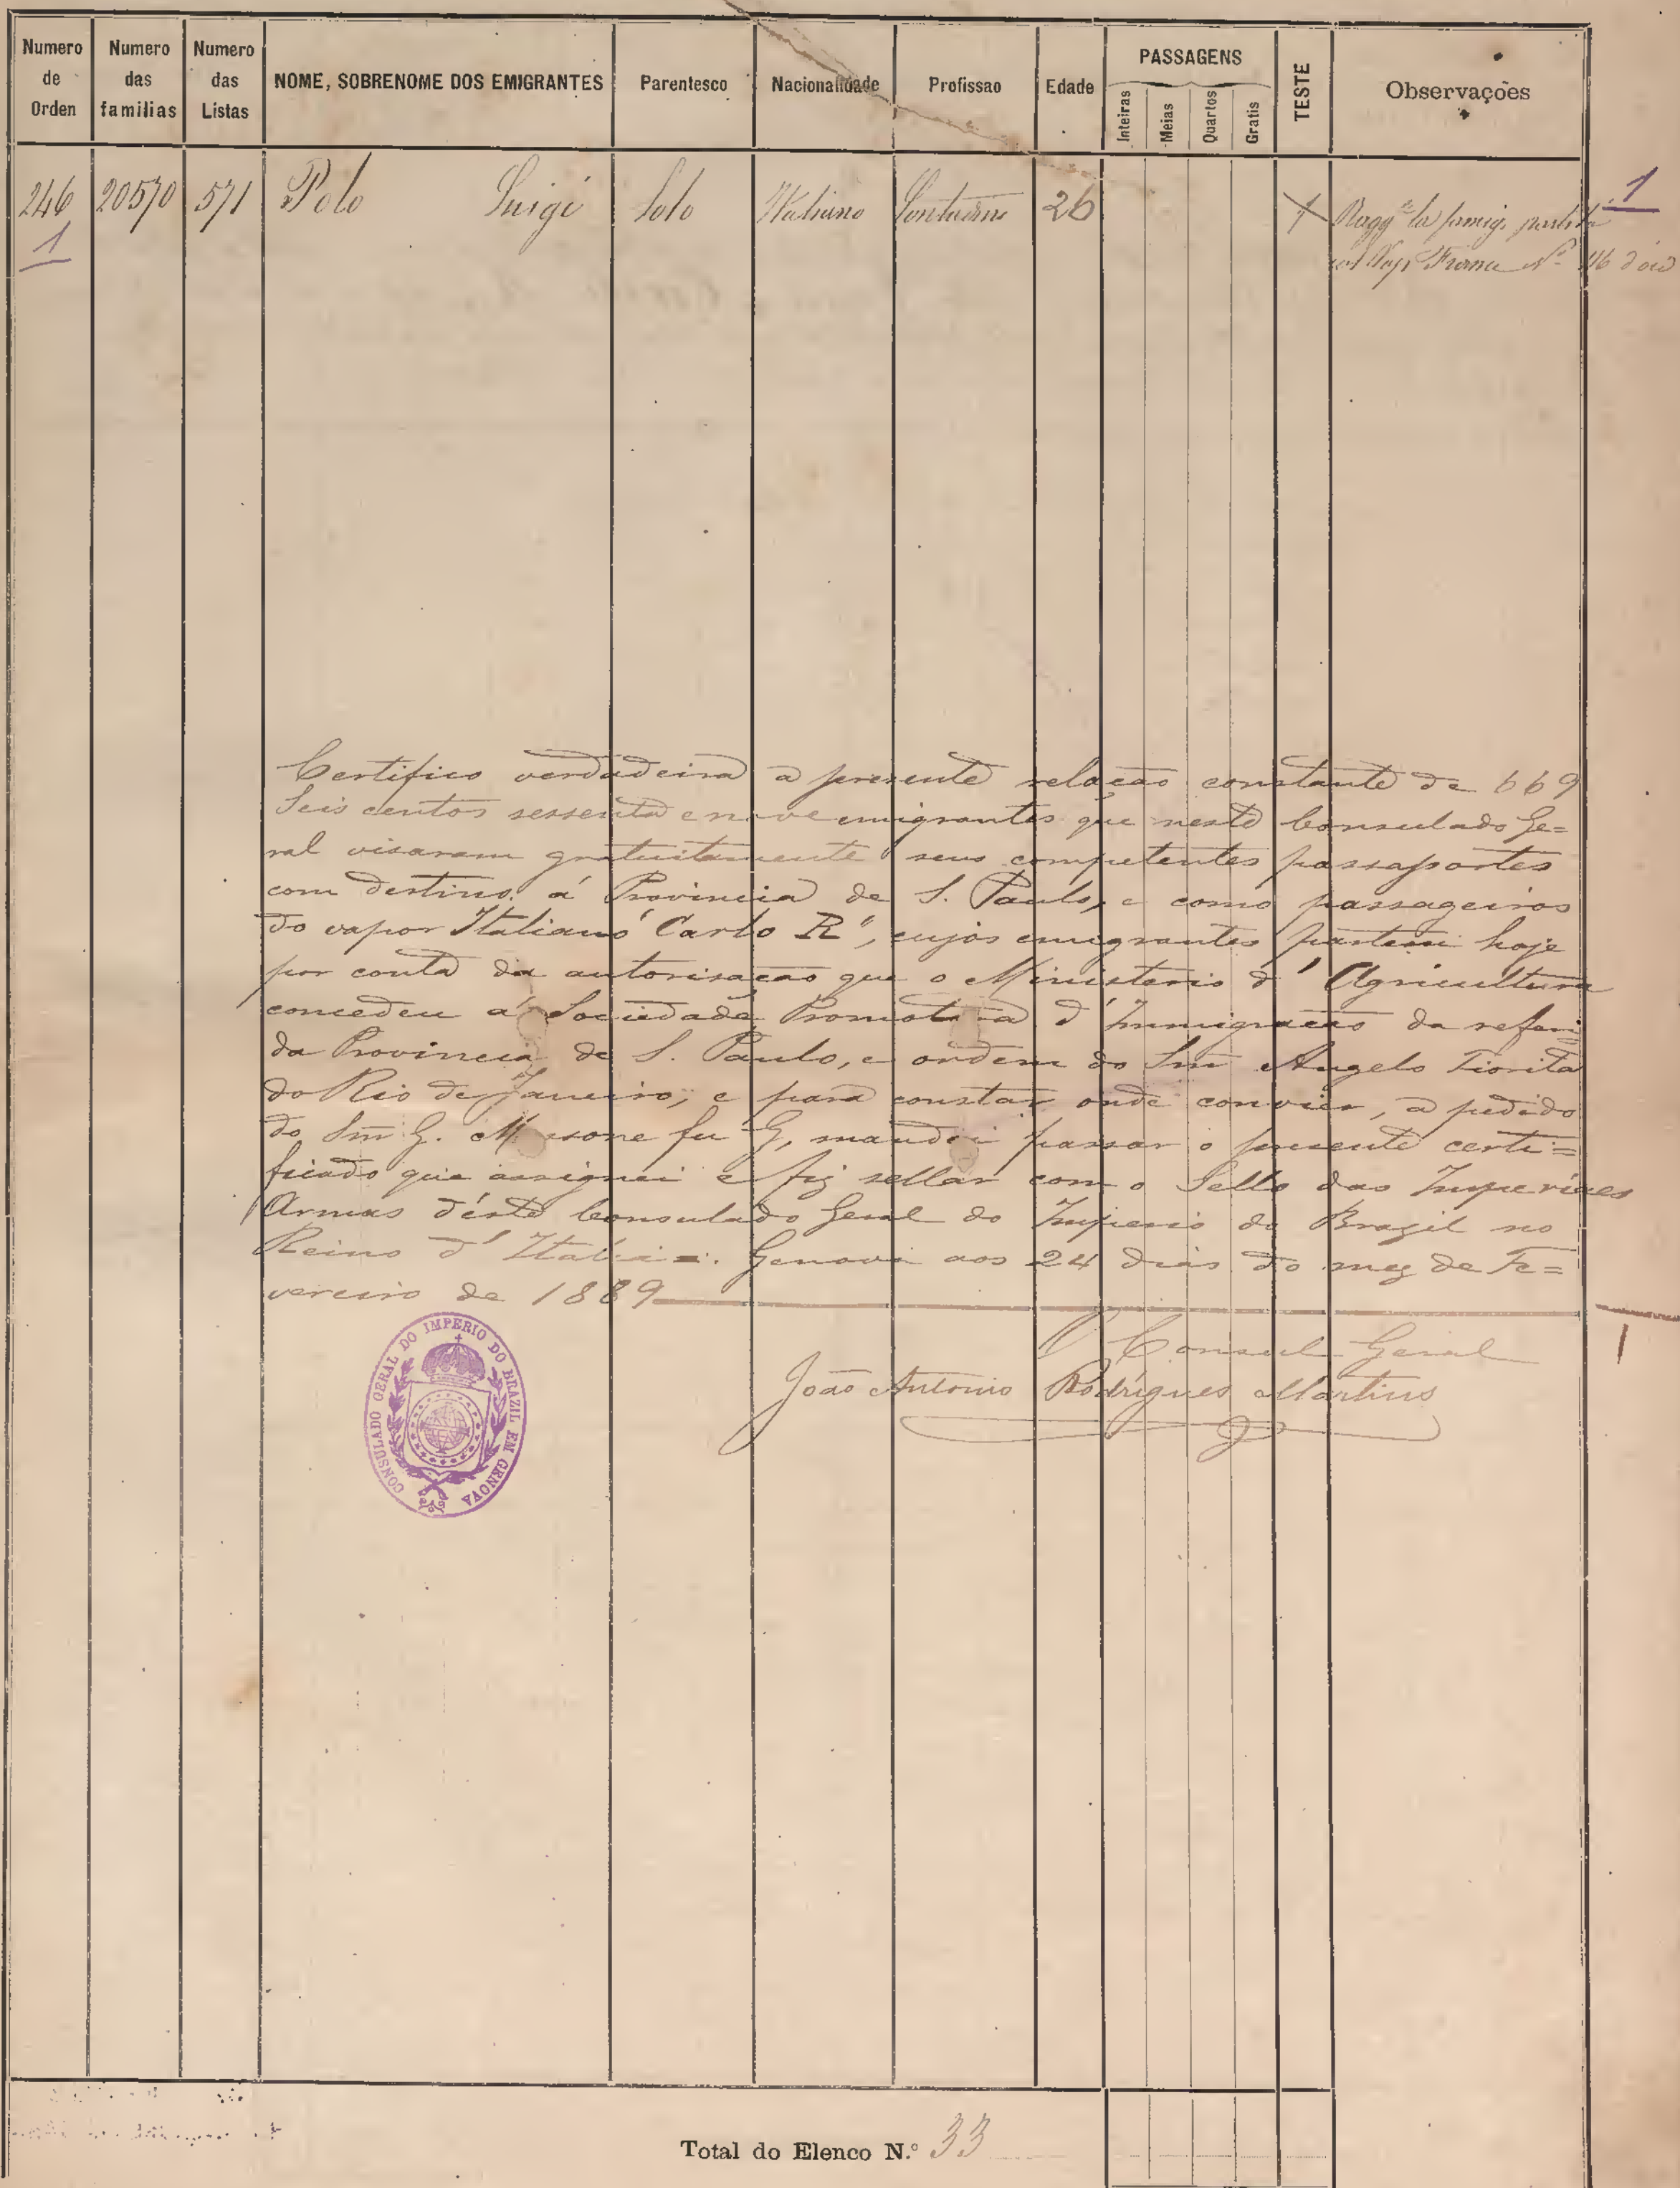 Numero de Orden
Numero das familias
Numero das Listas
NOME, SOBRENOME DOS EMIGRANTES
Parentesco
Nacionalidade
Profissao
Edade
PASSAGENS
Inteiras
Meias
Quartos
Gratis
TESTE
Observações
246 20570 571 Polo Luigi Solo Italiano Contadino 26 1 1
Ragg.e la famig. partita
col Vap. France Nº
1
Certifico verdadeira a presente relação constante de 669
Seis centos sessenta e nove emigrantes que neste Consulado Ge=
ral visaram gratuitamente seus competentes passaportes
com destino á Provincia de S. Paulo, e como passageiros
do vapor Italiano "Carlo R", cujos emigrantes partem hoje
por conta da autorisação que o Ministerio d'Agricultura
concedeu á Sociedade Promotora d'Immigração da referi
da Provincia de S. Paulo, e ordem do Snr Angelo Fiorita
do Rio de Janeiro; e para constar onde convier, a pedido
do Snr G. Massone fu G, mandei passar o presente certi=
ficado que assignei e fiz sellar com o Sello das Imperiaes
Armas déste Consulado Geral do Imperio do Brazil no
Reino d'Italia. Genova aos 24 dias do mez de Fe=
vereiro de 1889
CONSULADO GERAL DO IMPERIO DO BRAZIL EM GENOVA
O Consul Geral
João Antonio Rodrigues Martins
Total do Elenco N.º 33